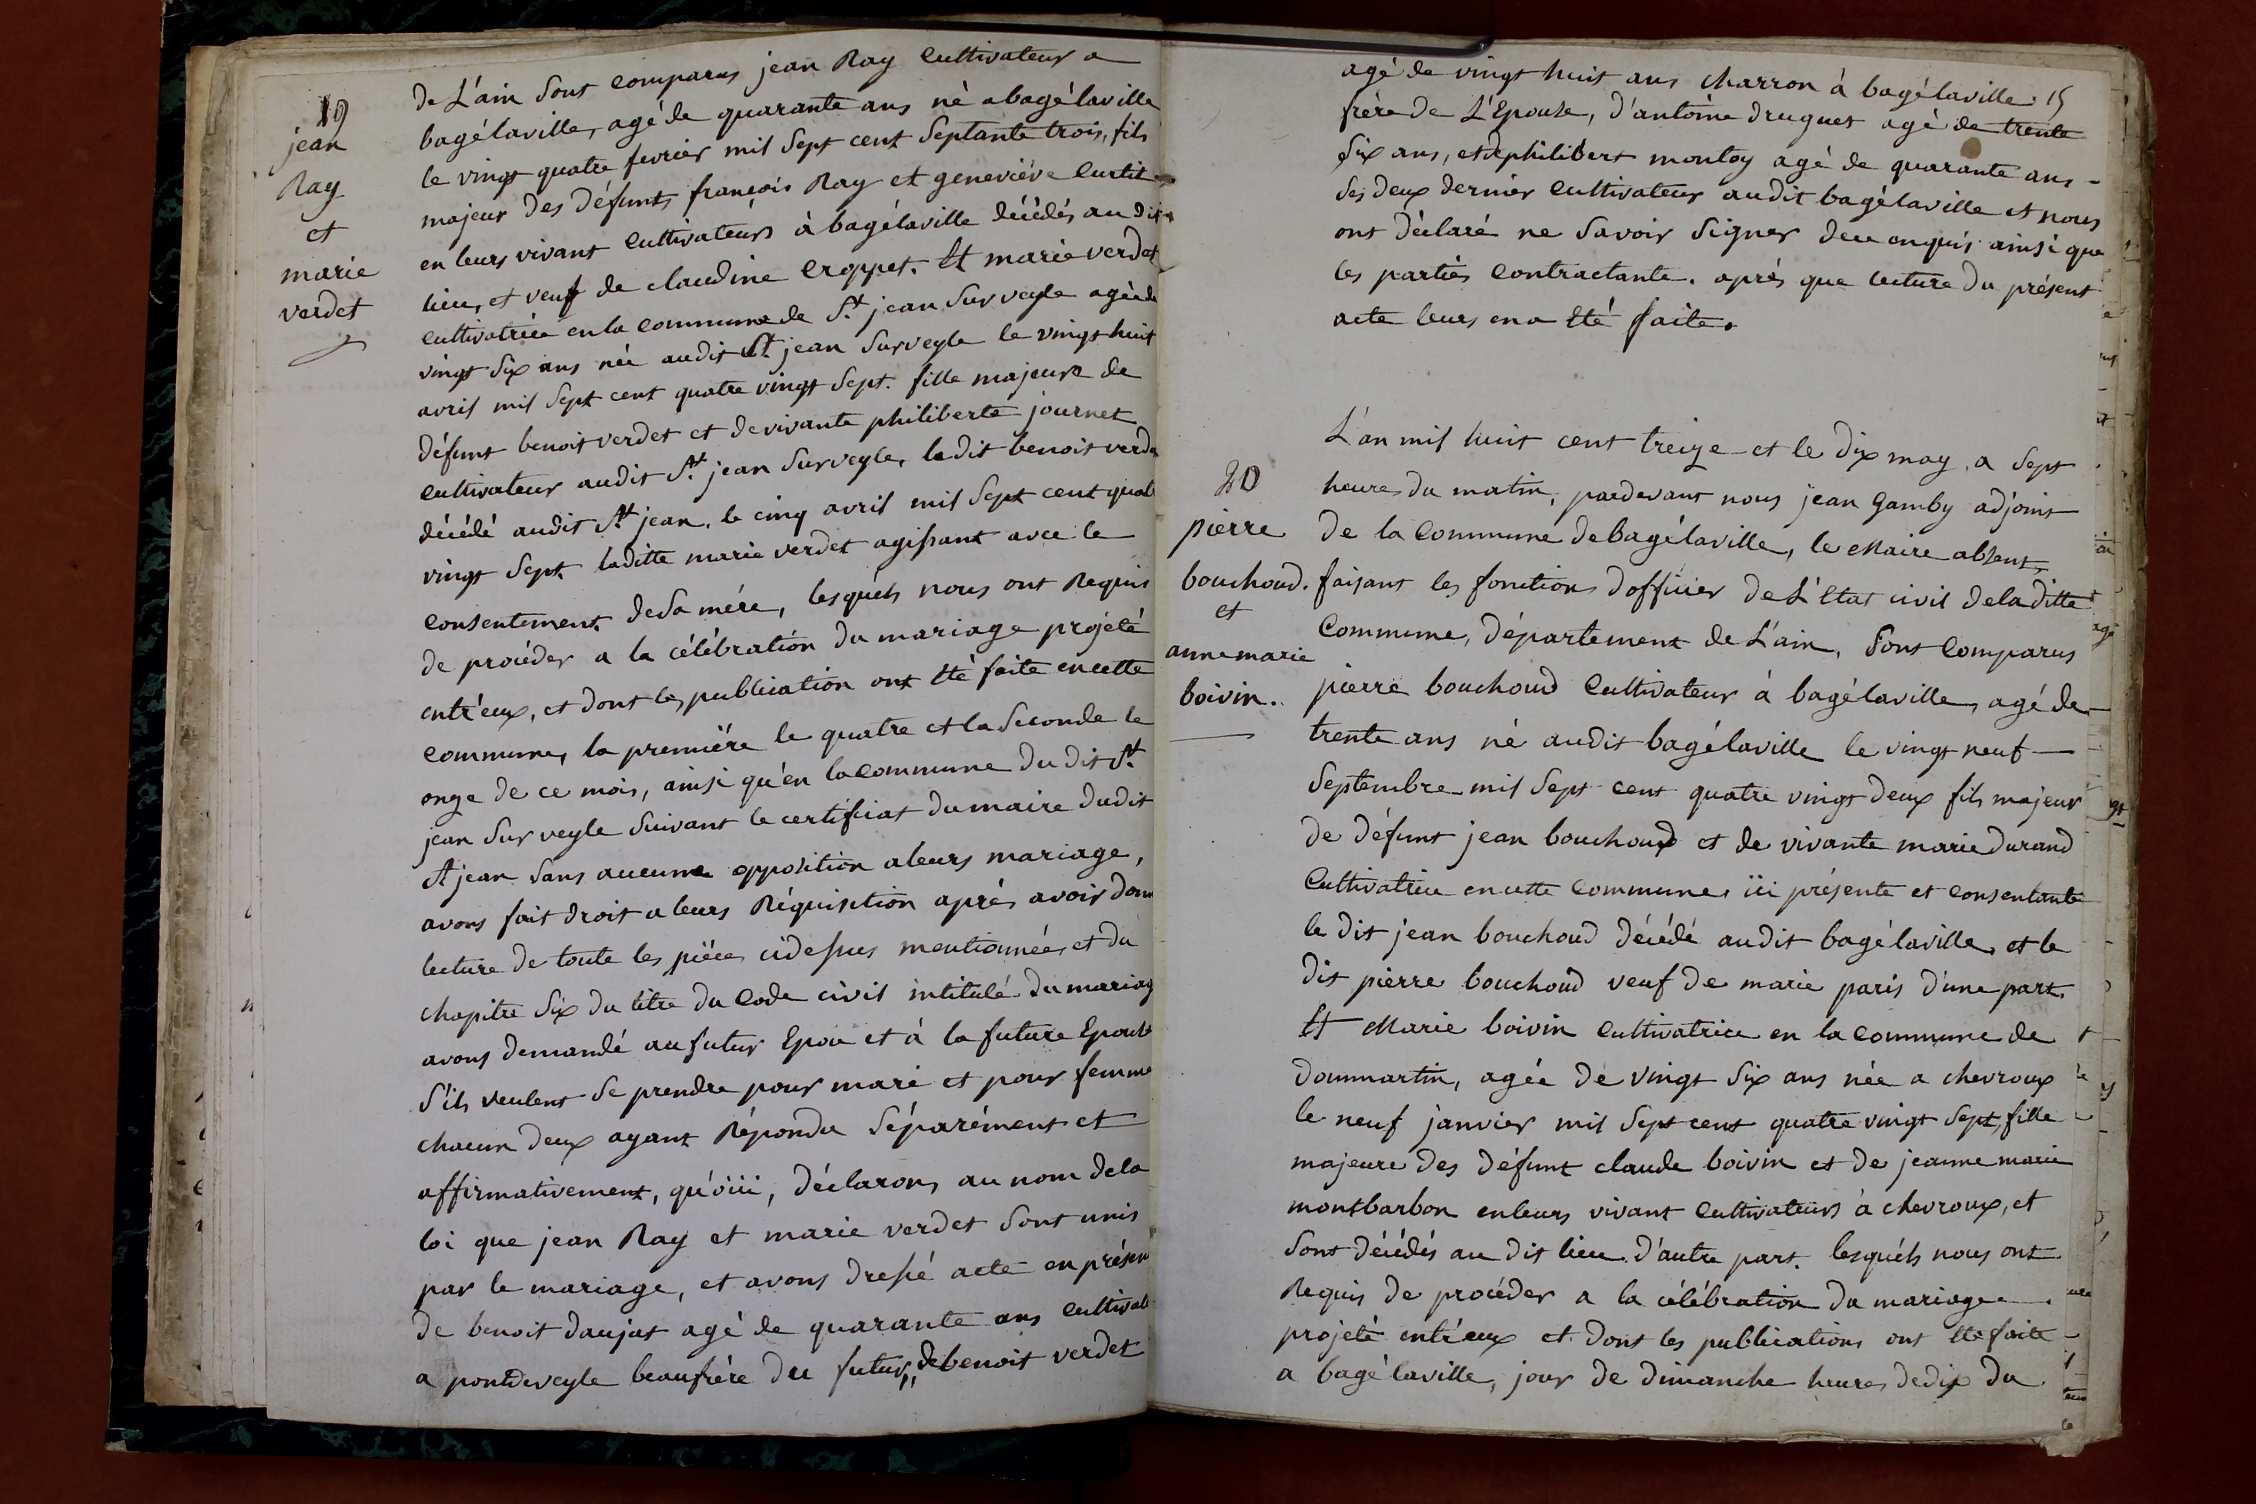 19
jean
Ray
et
marie
verdet
de L'ain Sont comparus jean Ray Cultivateur a
bagélaville, agé de quarante ans né a bagélaville
le vingt quatre fevrier mil Sept cent Septante trois, fils
majeur des défunts françois Ray et geneviéve Curtit
en leurs vivant Cultivateurs à bagélaville décédés au dit
lieu, et veuf de claudine Croppet. Et marie verdet
cultivatrice en la commune de St. jean Sur veyle agée de
vingt Six ans née audit St jean Surveyle le vingt huit
avril mil Sept cent quatre vingt Sept. fille majeure de
défunt benoit verdet et de vivante philiberte journet
Cultivateur audit St. jean Surveyle, le dit benoit verde
décédé audit St. jean, le cinq avril mil Sept cent quat
vingt Sept. laditte marie verdet agissant avec le
Consentement de Sa mére, lesquéls nous ont Requis
de procéder a la célébration du mariage projété
entr'eux, et dont les publication ont Eté faite en cette
commune, la premiére le quatre et la Seconde le
onze de ce mois, ainsi qu'en la commune du dit St.
jean Sur veyle Suivant le certificat du maire dudit
St jean Sans aucunne opposition a leurs mariage,
avons fait droit a leurs Réquisition aprés avoir donn
lecture de toute les piéces cidessus mentionnées et du
chapitre Six du titre du Code civil intitulé du mariag
avons demandé au futur Epou et à la future Epouse
S'ils veulent Se prendre pour mari et pour femme
chacun deux ayant Répondu Séparément et
affirmativement, qu'oüi, déclarons au nom de la
loi que jean Ray et marie verdet Sont unis
par le mariage, et avons dressé acte en présen
de benoit daujat agé de quarante ans Cultivat
a pondeveyle beaufrére du futur, de benoit verdet
agé de vingt huit ans charron à bagélaville 15
frére de L'Epouse, d'antoine druguet agé de trente
Six ans, et de philibert montoy agé de quarante ans -
Ses deux dernier Cultivateur audit bagélaville et nous
ont déclaré ne Savoir Signer de ce enquis ainsi que
les parties Contractante. aprés que lecture du présent
acte leurs en a Eté faite.
20
pierre
bouchoud.
et
anne marie
boivin.
L'an mil huit cent treize et le dix may, a Sept
heures du matin, pardevant nous jean Gamby adjoint
de la Commune de Bagélaville, le Maire absent,
faisant les fonctions d'officier de L'Etat civil de laditte
Commune, département de L'ain, Sont Comparus
pierre bouchoud Cultivateur à bagélaville, agé de
trente ans né audit bagélaville le vingt neuf
Septembre mil Sept cent quatre vingt deux fils majeur
de défunt jean bouchoud et de vivante marie durand
Cultivatrice en cette Commune, ici présente et consentante
le dit jean bouchoud décédé audit bagélaville, et le
dit pierre bouchoud veuf de marie paris d'une part.
Et Marie boivin Cultivatrice en la Commune de
dommartin, agée de vingt Six ans née a chevroux
le neuf janvier mil Sept cent quatre vingt Sept, fille
majeure des défunt claude boivin et de jeanne marie
montbarbon en leurs vivant Cultivateurs à chevroux, et
Sont décédés au dit lieu d'autre part. lesquéls nous ont
Requis de procéder a la célébration du mariage
projeté entr'eux et dont les publications ont Eté faite
a bagélaville, jour de dimanche heures de dix du